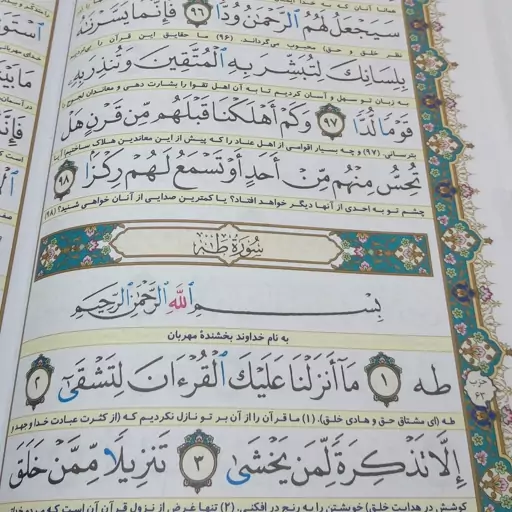 سَيَجْعَلُ لَهُمُ ٱلرَّحْمَٰنُ وُدًّا ٩٦ فَإِنَّمَا يَسَّرْنَٰهُ
بِلِسَانِكَ لِتُبَشِّرَ بِهِ ٱلْمُتَّقِينَ وَتُنذِرَ بِهِ
به زبان تو سهل و آسان کردیم تا به آن اهل تقوا را بشارت دهی و معاندان
قَوْمًا لُّدًّا ٩٧ وَكَمْ أَهْلَكْنَا قَبْلَهُم مِّن قَرْنٍ هَلْ
بترسانی. (۹۷) و چه بسیار اقوامی از اهل عناد را که پیش از این معاندین هلاک ساختیم آیا
تُحِسُّ مِنْهُم مِّنْ أَحَدٍ أَوْ تَسْمَعُ لَهُمْ رِكْزًا ٩٨
چشم تو به احدی از آنها دیگر خواهد افتاد؟ یا کمترین صدایی از آنان خواهی شنید؟ (۹۸)
سُورَةُ طه
بِسْمِ ٱللَّهِ ٱلرَّحْمَٰنِ ٱلرَّحِيمِ
به نام خداوند بخشندهٔ مهربان
طه ١ مَآ أَنزَلْنَا عَلَيْكَ ٱلْقُرْءَانَ لِتَشْقَىٰٓ ٢
طه (ای مشتاق حق و هادی خلق). (۱) ما قرآن را از آن بر تو نازل نکردیم که (از کثرت عبادت خدا و جهد و
إِلَّا تَذْكِرَةً لِّمَن يَخْشَىٰ ٣ تَنزِيلًا مِّمَّنْ خَلَقَ
کوشش در هدایت خلق) خویشتن را به رنج درافکنی. (۲) تنها غرض از نزول قرآن آن است که